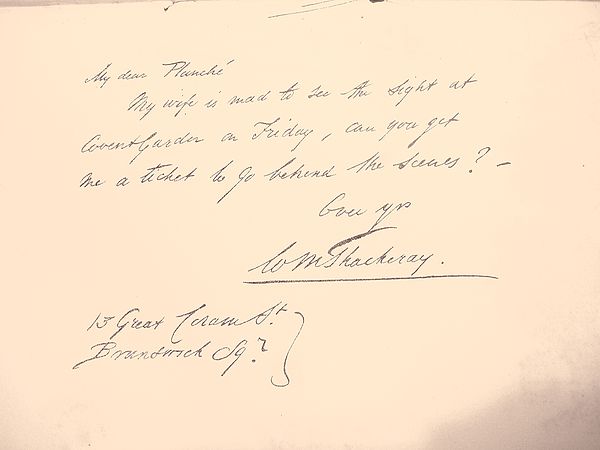 My dear Planché
My wife is mad to see the sight at
Covent Garden on Friday, can you get
me a ticket to go behind the scenes? –
Ever yrs
W M Thackeray.
13 Great Coram St.
Brunswick Sq.